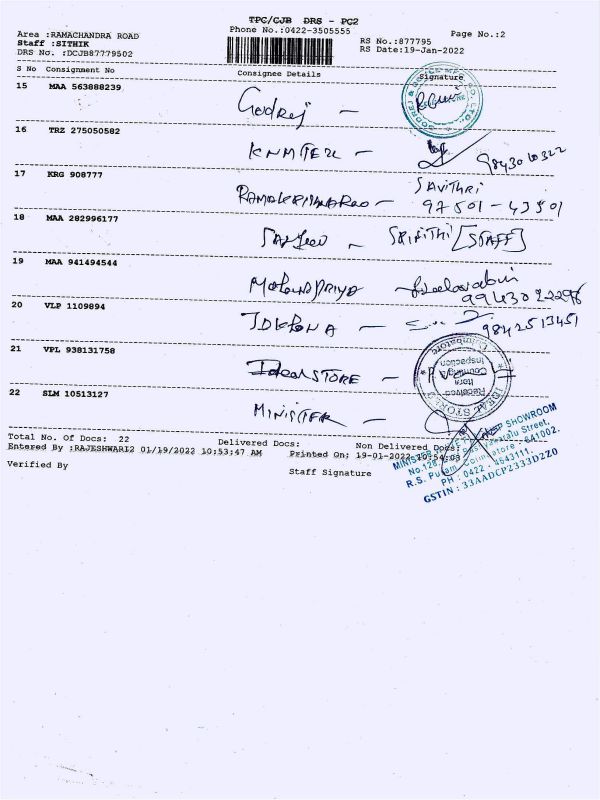 TPC/CJB DRS - PC2
Area :RAMACHANDRA ROAD Phone No.:0422-3505555 Page No.:2
Staff :SITHIK RS No.:877795
DRS No. :DCJB87779502 RS Date:19-Jan-2022
S No Consignment No Consignee Details Signature
15 MAA 563888239 Godrej -
16 TRZ 275050582 KNMTEX - 9843010322
17 KRG 908777 RAMAKRISHNARAO - SAVITHRI
97501-43501
18 MAA 282996177 SANJEEV - [STAFF]
19 MAA 941494544
9943022296
20 VLP 1109894 - 9842513451
21 VPL 938131758 Ideal STORE -
Received
Item
Counting &
Inspection
IDEAL STORES
Coimbatore
22 SLM 10513127 MINISTER -
Total No. Of Docs: 22 Delivered Docs: Non Delivered Docs:
Entered By :RAJESHWARI2 01/19/2022 10:53:47 AM Printed On: 19-01-2022 10:54:03
Verified By Staff Signature
MINISTER SHOWROOM
No.128, Street,
R.S. Puram, Coimbatore - 641002.
PH : 0422 - 4543111.
GSTIN : 33AADCP2333D2Z0